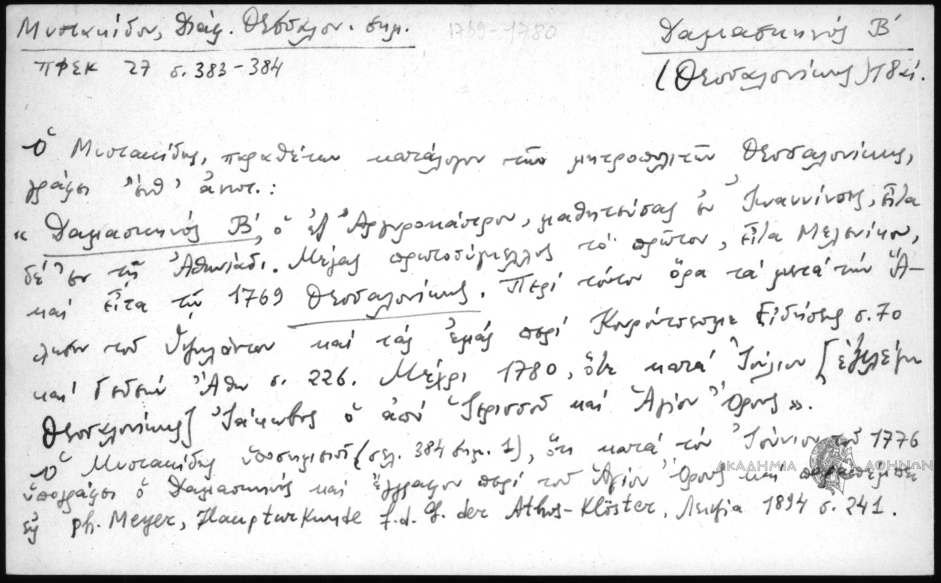 Μυστακίδου, Διάφ. Θεσσαλον. σημ. 1769-1780 Δαμασκηνός Β΄
ΠΦΣΚ 27 σ. 383-384 (Θεσσαλονίκης) 18 αἰ.
Ὁ Μυστακίδης, παραθέτων κατάλογον τῶν μητροπολιτῶν Θεσσαλονίκης,
γράφει ἐνθ᾽ ἀνωτ.:
« Δαμασκηνός Β΄, ὁ ἐξ Ἀργυροκάστρου, μαθητεύσας ἐν Ἰωαννίνοις, εἶτα
δέ ἐν τῇ Ἀθωνιάδι. Μέγας πρωτοσύγκελλος τό πρῶτον, εἶτα Μελενίκου,
καί εἶτα τῷ 1769 Θεσσαλονίκης. Περί τούτου ὅρα τά μετά τήν Ἅ-
λωσιν τοῦ Ὑψηλάντου καί τάς ἐμάς περί Κουρούτσεσμε Εἰδήσεις σ. 70
καί Γεδεών Ἄθω σ. 226. Μέχρι 1780, ὅτε κατά Ἰούλιον [ἐξελέγη
Θεσσαλονίκης] Ἰάκωβος ὁ ἀπό Ἱερισσοῦ καί Ἁγίου Ὄρους ».
Ὁ Μυστακίδης ὑποσημειοῖ (σελ. 384 σημ. 1), ὅτι κατά τόν Ἰούνιον τοῦ 1776
ὑπογράφει ὁ Δαμασκηνός καί ἔγγραφον περί τοῦ Ἁγίου Ὄρους καί παραπέμπει
εἰς Ph. Meyer, Haupturkunde f. d. G. der Athos-Klöster, Λειψία 1894 σ. 241.
ΑΚΑΔΗΜΙΑ ΑΘΗΝΩΝ